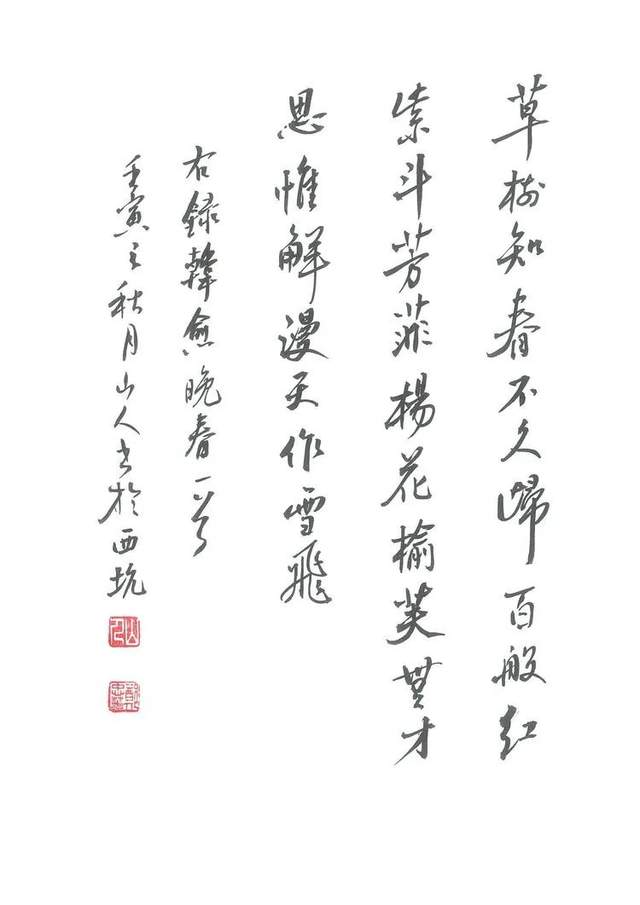 草树知春不久歸百般紅
紫斗芳菲楊花榆荚無才
思惟解漫天作雪飛
右録韓愈晚春一首
壬寅之秋月山人书於西坑
山人